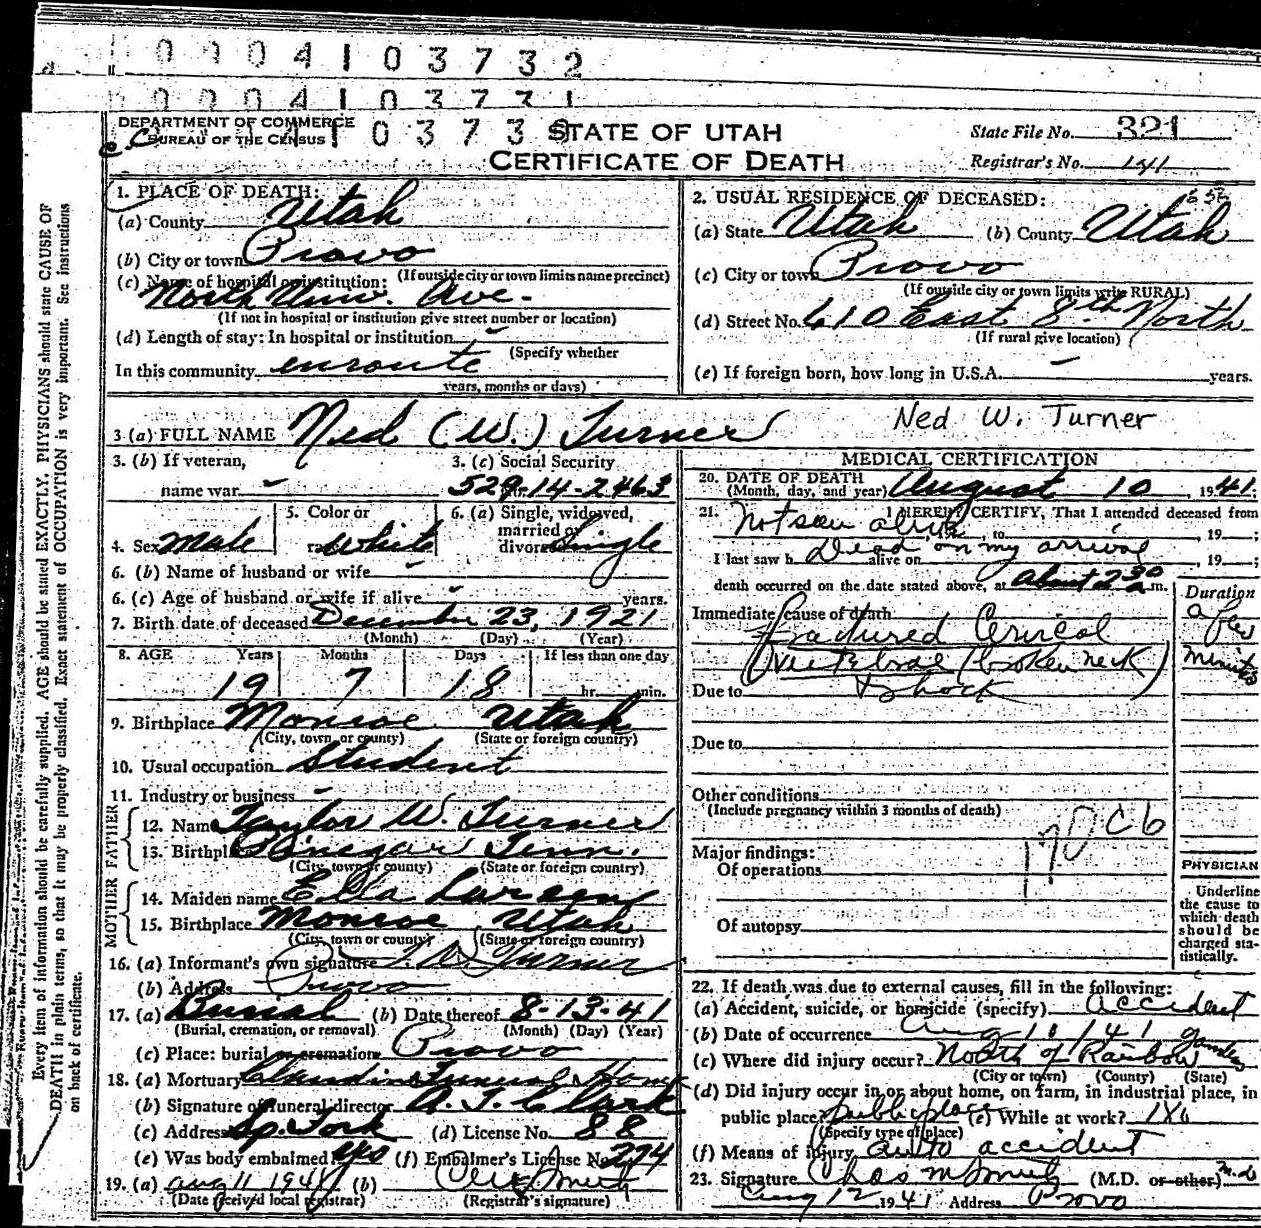 0 0 0 4 1 0 3 7 3 2
0 0 0 4 1 0 3 7 3 1
DEPARTMENT OF COMMERCE
BUREAU OF THE CENSUS
STATE OF UTAH
CERTIFICATE OF DEATH
State File No. 321
Registrar's No. 141
1. PLACE OF DEATH:
(a) County Utah
(b) City or town Provo
(If outside city or town limits name precinct)
(c) Name of hospital or institution:
North Univ. Ave.
(If not in hospital or institution give street number or location)
(d) Length of stay: In hospital or institution -
(Specify whether
In this community enroute
years, months or days)
2. USUAL RESIDENCE OF DECEASED:
(a) State Utah (b) County Utah
(c) City or town Provo
(If outside city or town limits write RURAL)
(d) Street No. 610 East 8th North
(If rural give location)
(e) If foreign born, how long in U.S.A. - years.
3 (a) FULL NAME Ned (W.) Turner
Ned W. Turner
3. (b) If veteran,
name war -
3. (c) Social Security
529-14-2463
4. Sex Male
5. Color or
race White
6. (a) Single, widowed,
married or
divorced Single
6. (b) Name of husband or wife -
6. (c) Age of husband or wife if alive - years.
7. Birth date of deceased December 23, 1921
(Month) (Day) (Year)
8. AGE Years Months Days If less than one day
19 7 18 hr. min.
9. Birthplace Monroe Utah
(City, town, or county) (State or foreign country)
10. Usual occupation Student
11. Industry or business -
FATHER
12. Name Taylor W. Turner
13. Birthplace Tenn.
(City, town or county) (State or foreign country)
MOTHER
14. Maiden name Ella Larsen
15. Birthplace Monroe Utah
(City, town or county) (State or foreign country)
16. (a) Informant's own signature T. W. Turner
(b) Address Provo
17. (a) Burial (b) Date thereof 8-13-41
(Burial, cremation, or removal) (Month) (Day) (Year)
(c) Place: burial or cremation Provo
18. (a) Mortuary Claudin Funeral Home
(b) Signature of funeral director A. T. Clark
(c) Address Sp. Fork (d) License No. 88
(e) Was body embalmed? yes (f) Embalmer's License No. 274
19. (a) Aug 11 1941 (b)
(Date received local registrar) (Registrar's signature)
MEDICAL CERTIFICATION
20. DATE OF DEATH
(Month, day, and year) August 10, 1941;
21. I HEREBY CERTIFY, That I attended deceased from
Not seen alive, to , 19 ;
I last saw h Dead on my arrival alive on , 19 ;
death occurred on the date stated above, at about 2 30 a m.
Duration
Immediate cause of death
Fractured Cervical
Vertebrae (broken neck)
a few
minutes
Due to & shock
Due to
Other conditions
(Include pregnancy within 3 months of death)
170 C6
Major findings:
Of operations
Of autopsy
PHYSICIAN
Underline
the cause to
which death
should be
charged sta-
tistically.
22. If death was due to external causes, fill in the following:
(a) Accident, suicide, or homicide (specify) Accident
(b) Date of occurrence Aug 10 1941
(c) Where did injury occur? North of Rainbow Gardens
(City or town) (County) (State)
(d) Did injury occur in or about home, on farm, in industrial place, in
public place? public place (e) While at work? no
(Specify type of place)
(f) Means of injury auto accident
23. Signature Chas M Smith (M.D. or other) M.D
Aug 12 1941 Address Provo
Every item of information should be carefully supplied. AGE should be stated EXACTLY. PHYSICIANS should state CAUSE OF
DEATH in plain terms, so that it may be properly classified. Exact statement of OCCUPATION is very important. See instructions
on back of certificate.